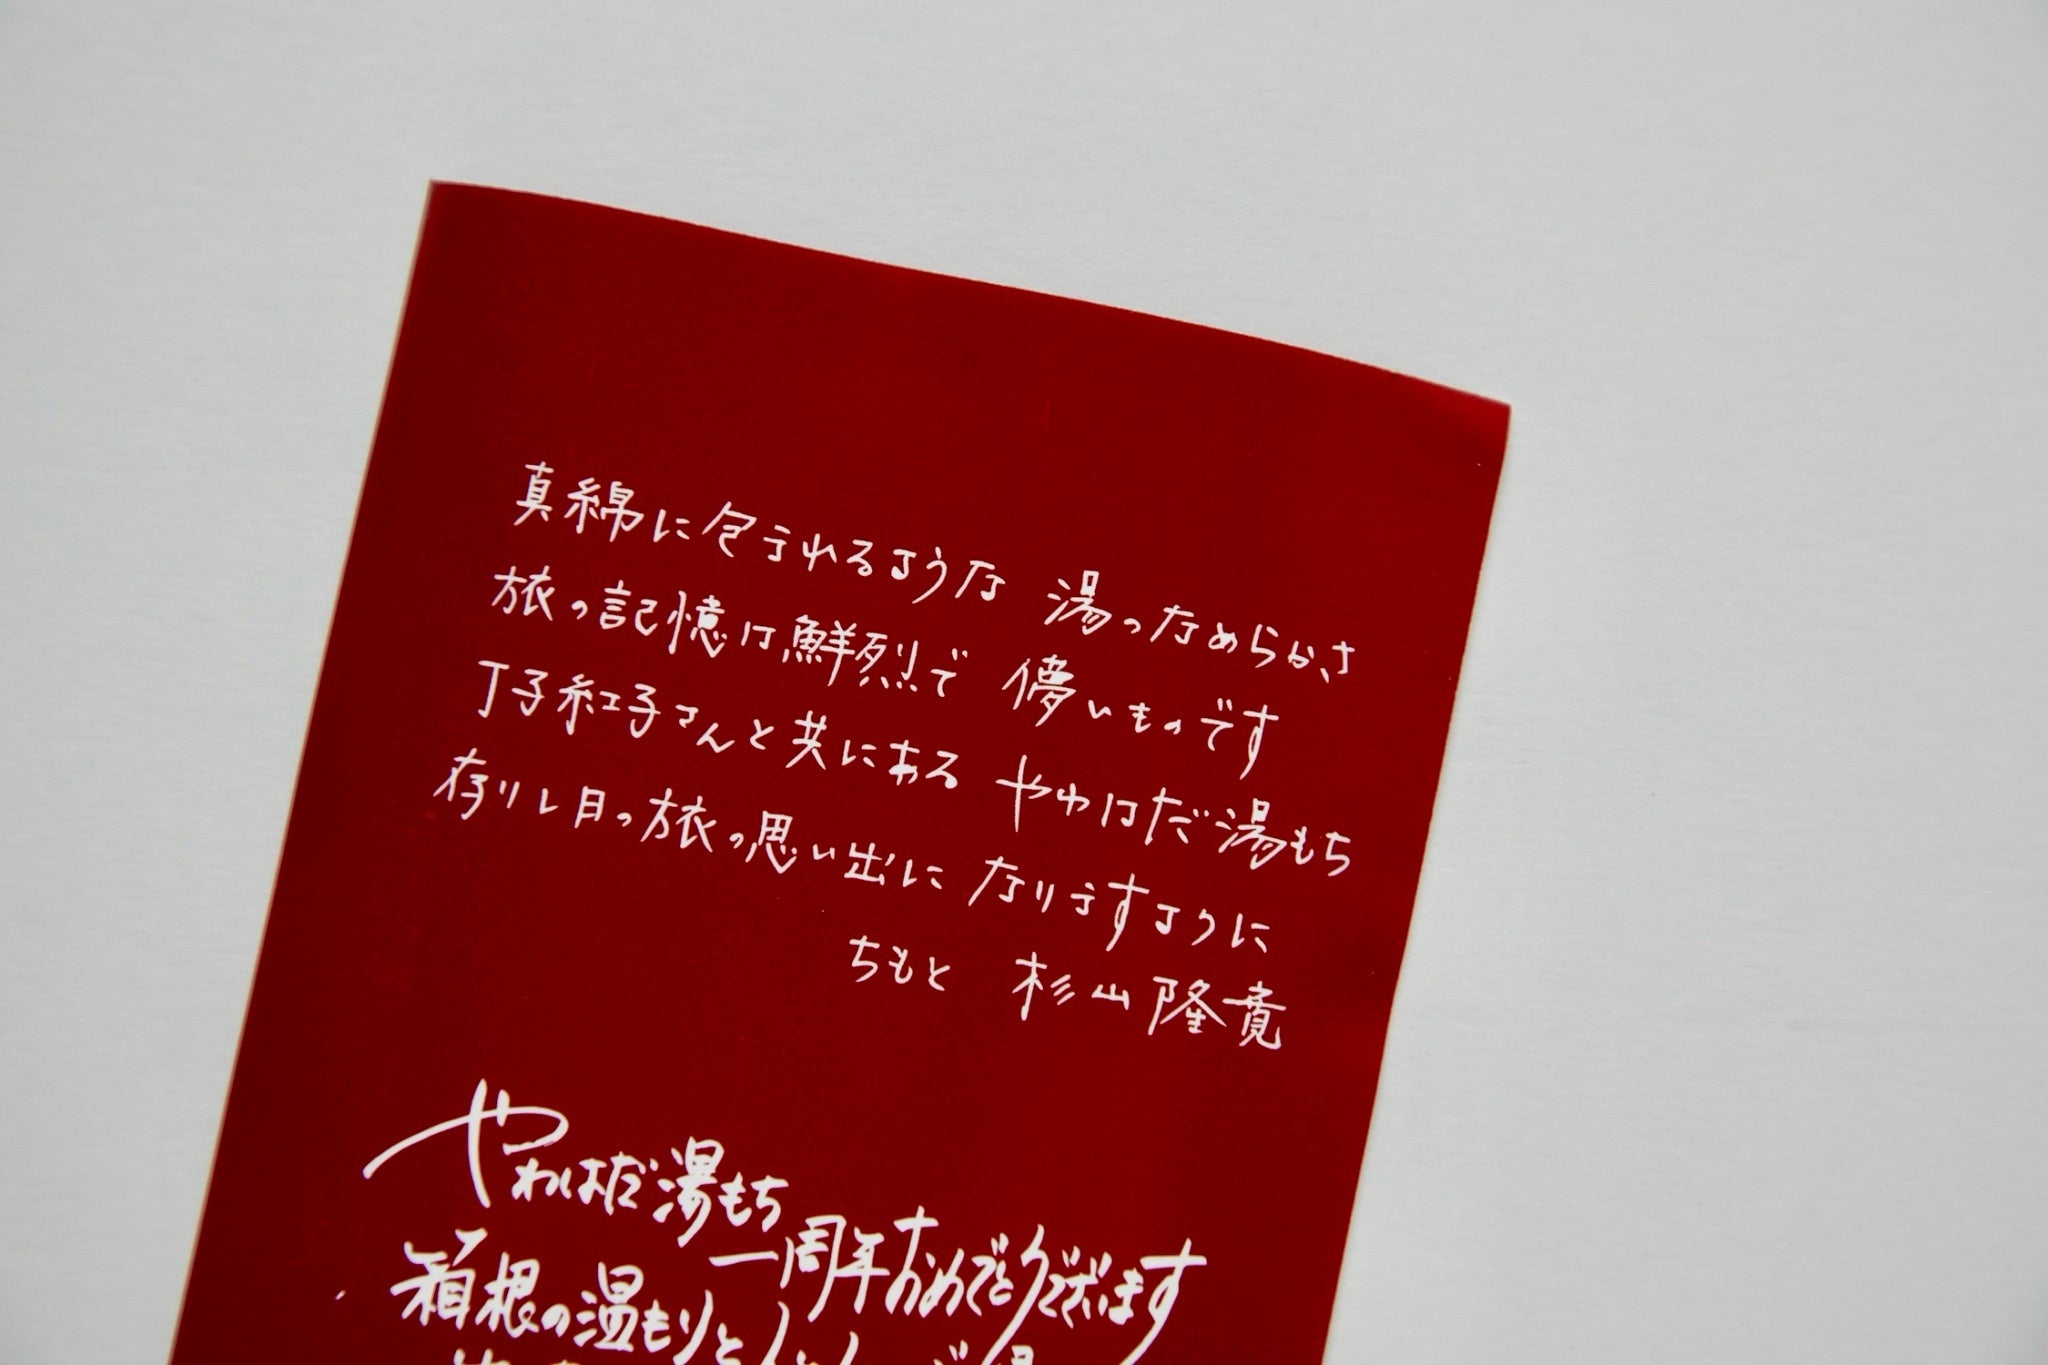 真綿に包まれるような 湯のなめらかさ
旅の記憶は鮮烈で 儚いものです
丁子紅子さんと共にある やわはだ湯もち
在りし日の旅の思い出に なりますように
ちもと 杉山隆寛
やわはだ湯もち
一周年おめでとうございます
箱根の温もりと